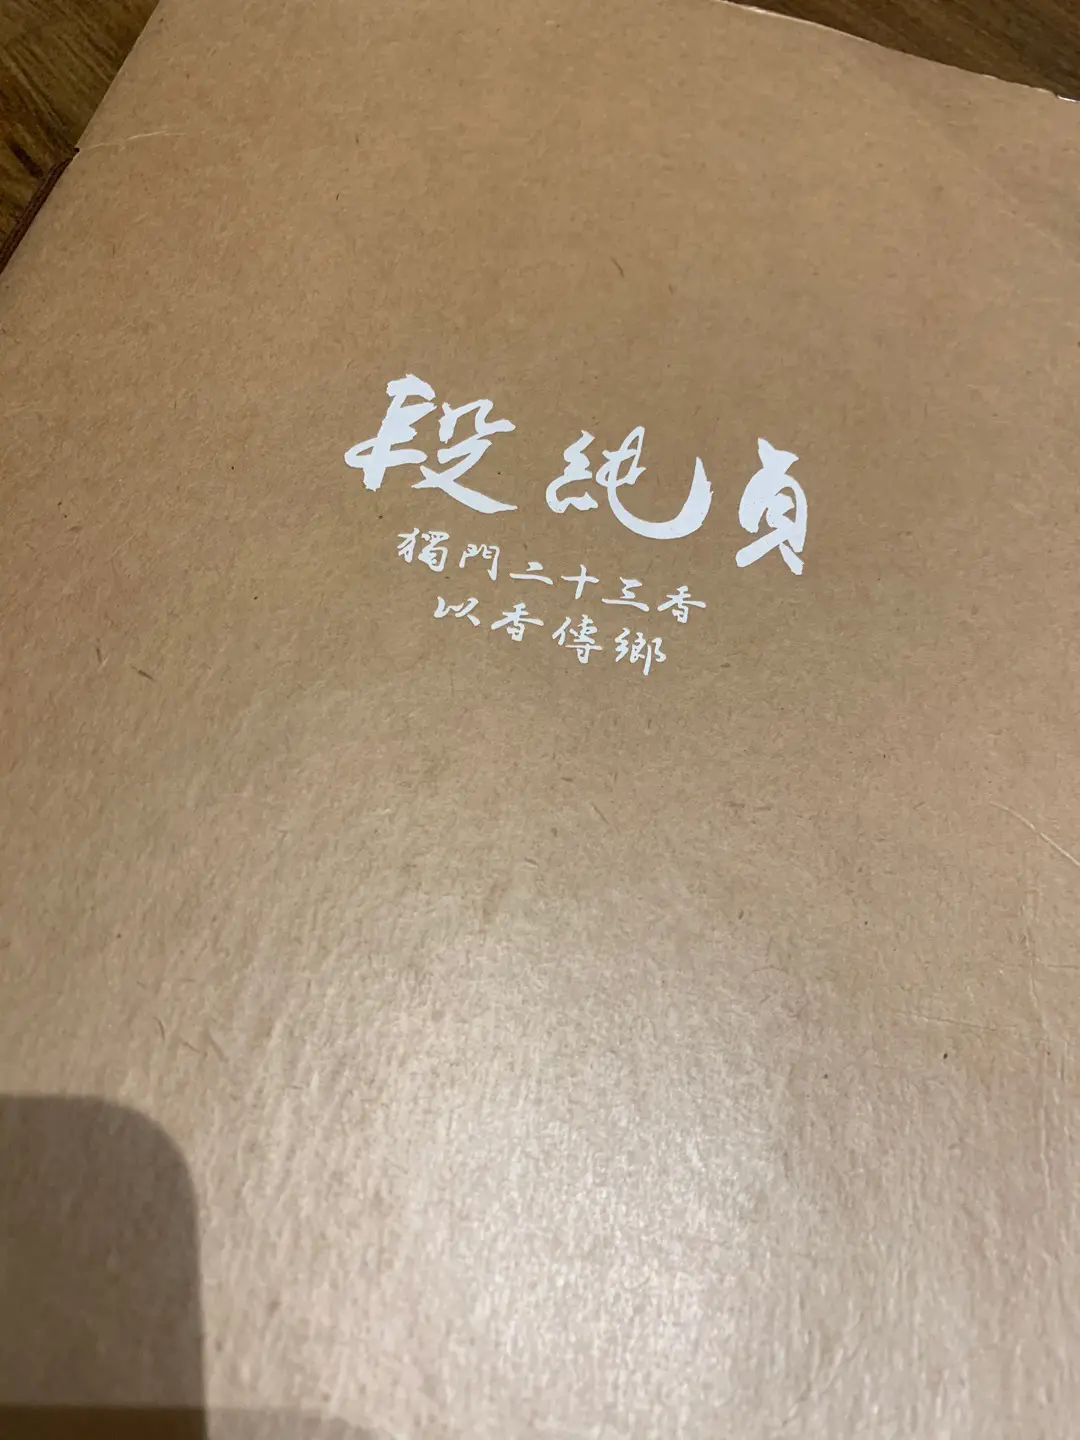 段純貞
獨門二十三香
以香傳鄉